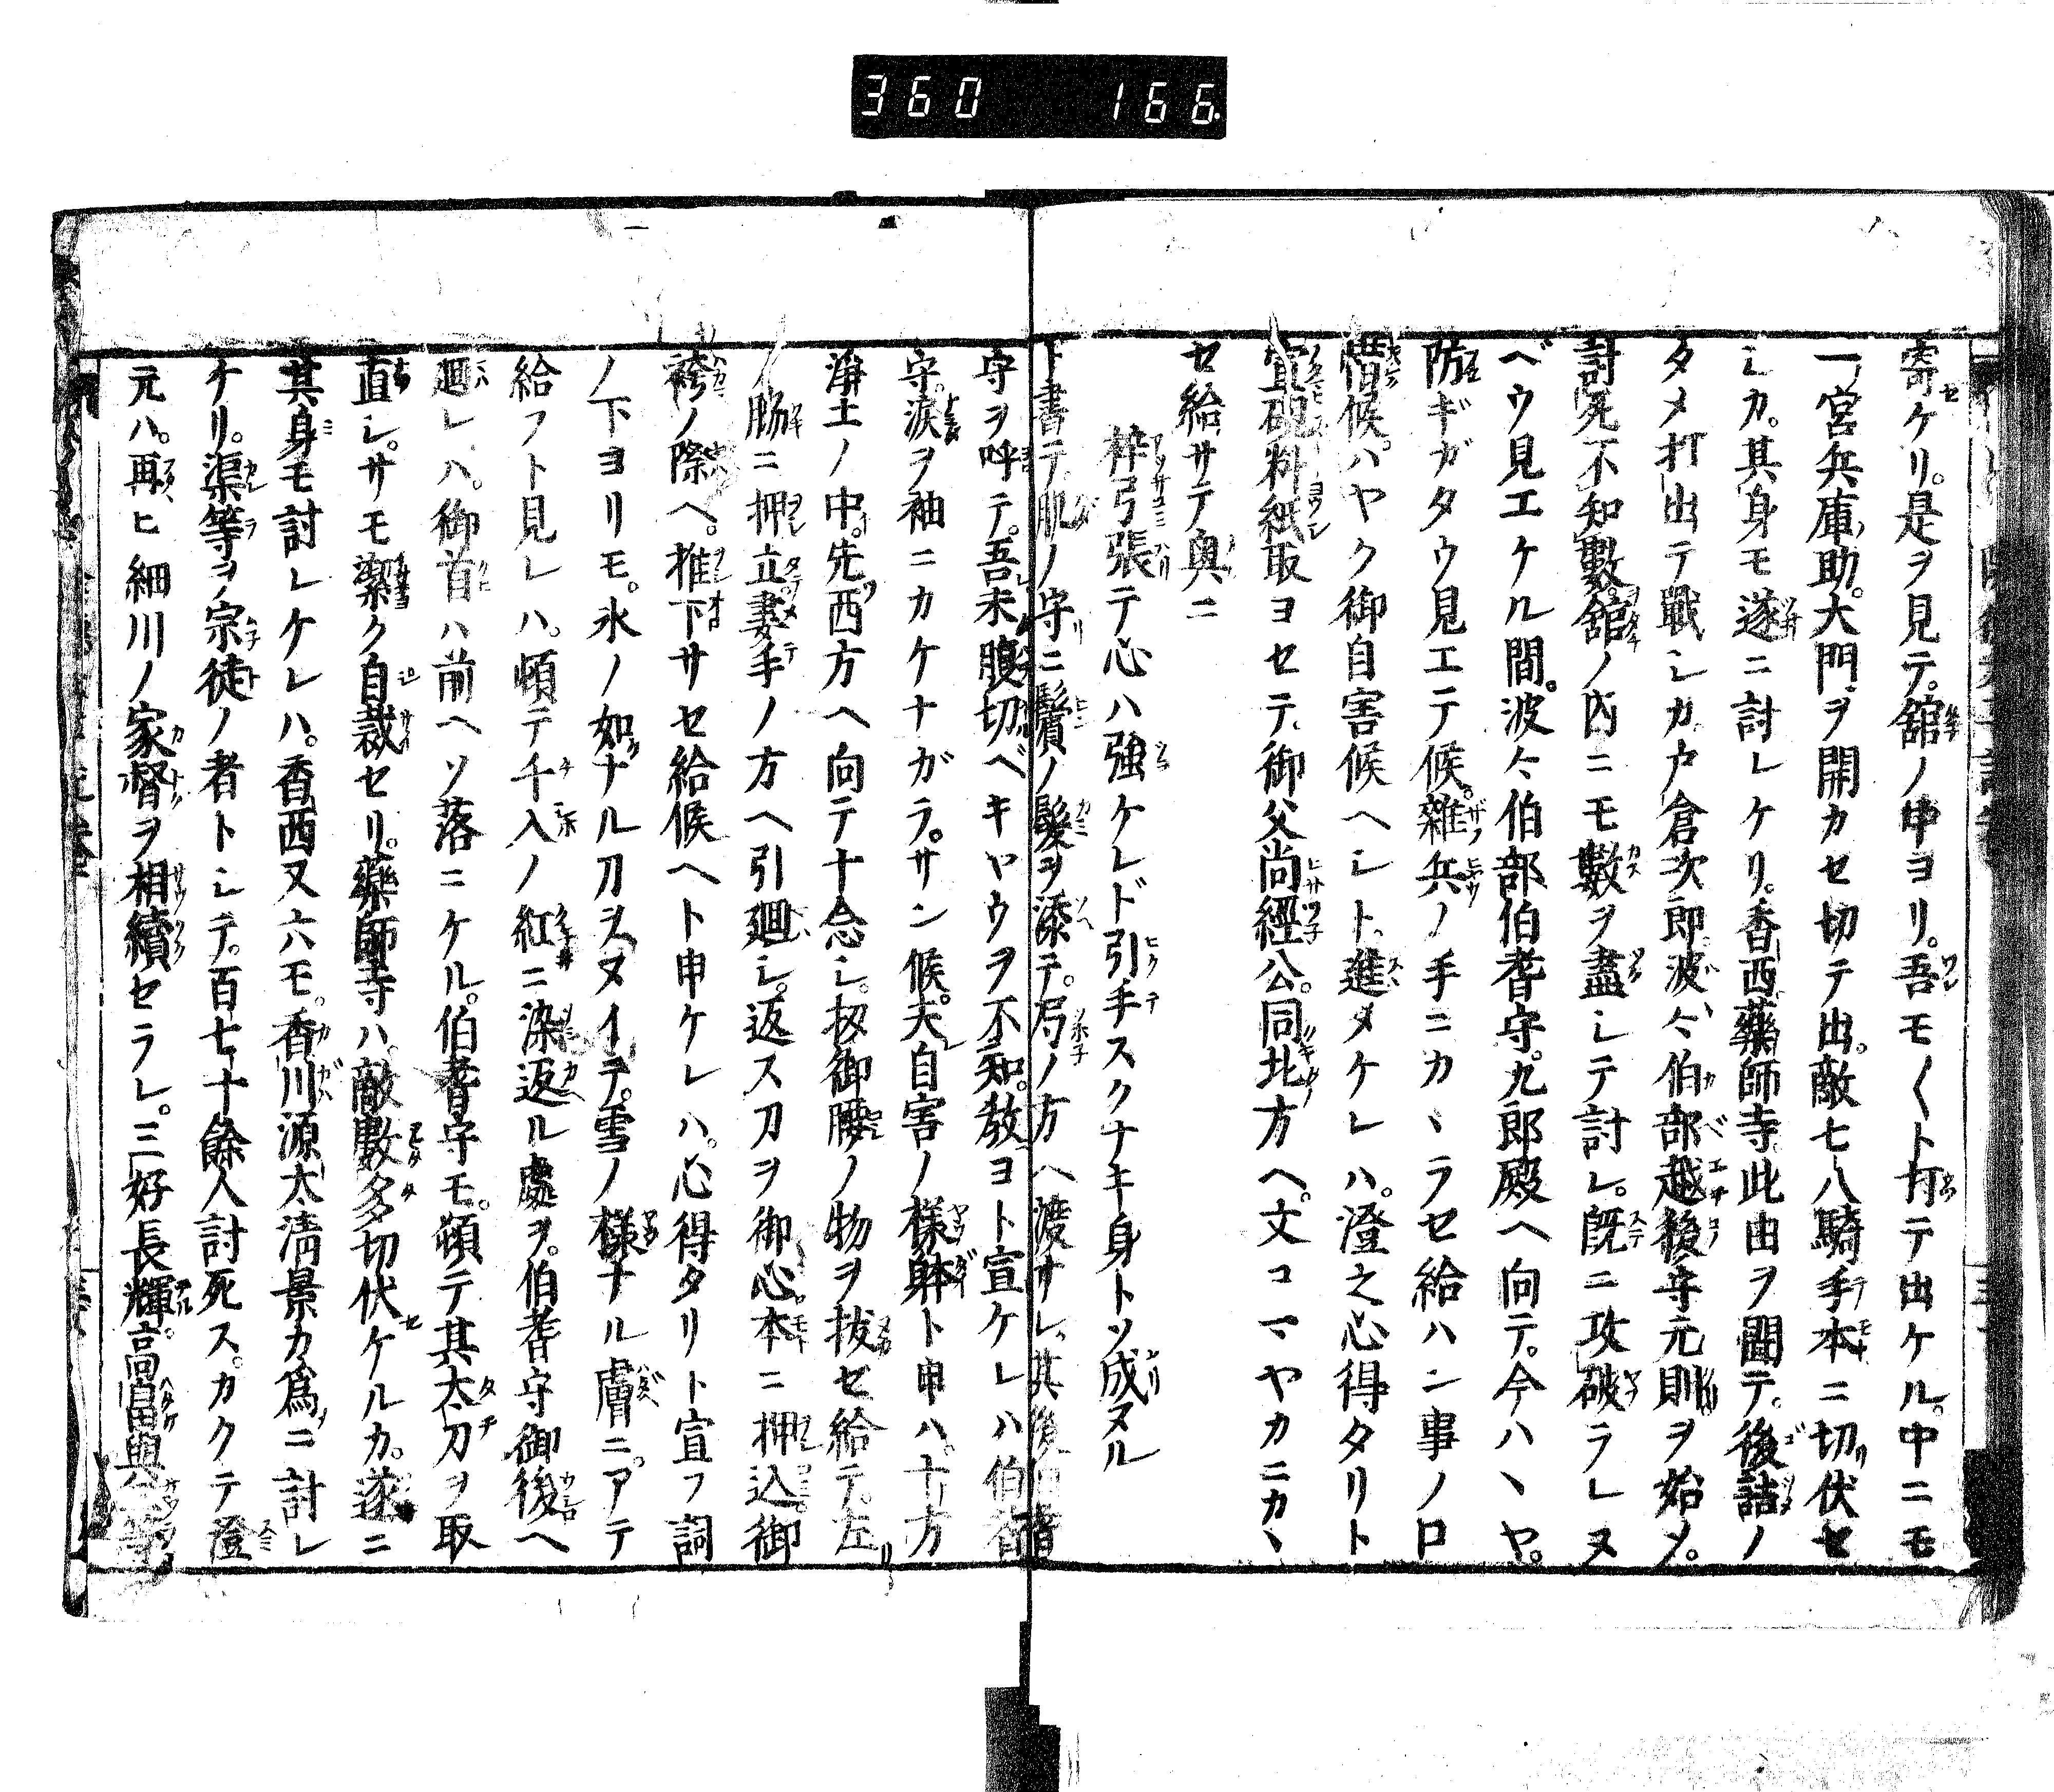 360 166
寄ケリ。是ヲ見テ。舘ノ中ヨリ。吾モ〳〵ト打テ出ケル。中ニモ
一宮兵庫助。大門ヲ開カセ切テ出。敵七八騎手本ニ切伏セ
シカ。其身モ遂ニ討レケリ。香西藥師寺此由ヲ聞テ。後詰ノ
タメ打出テ戰シカ。戸倉次郎。波々伯部越後守元則ヲ始メ。
討死不知數。舘ノ内ニモ數ヲ盡シテ討レ。既ニ攻破ラレヌ
ベウ見エケル間。波々伯部伯耆守。九郎殿ヘ向テ。今ハヽヤ。
防ギガタウ見エテ候。雜兵ノ手ニカヽラセ給ハン事ノ口
惜候。ハヤク御自害候ヘシト。進メケレハ。澄之心得タリト
宣。硯料紙取ヨセテ。御父尚經公。同北方ヘ。文コマヤカニカヽ
セ給。サテ奥ニ
梓弓張テ心ハ強ケレド引手スクナキ身トソ成ヌル
ト書テ。肌ノ守ニ鬢ノ髮ヲ添テ。局ノ方ヘ渡サレ。其後伯耆
守ヲ呼テ。吾未腹切ベキヤウヲ不知。教ヨト宣ケレハ伯耆
守。涙ヲ袖ニカケナガラ。サン候。夫自害ノ様躰ト申ハ。十方
淨土ノ中。先西方ヘ向テ十念シ。扨御腰ノ物ヲ拔セ給テ。左
ノ脇ニ押立。妻手ノ方ヘ引廻シ。返ス刀ヲ御心本ニ押込。御
袴ノ際ヘ。推下サセ給候ヘト申ケレハ。心得タリト宣フ詞
ノ下ヨリモ。氷ノ如ナル刀ヲヌイテ。雪ノ様ナル膚ニ。アテ
給フト見レハ。頓テ千入ノ紅ニ染返ル處ヲ。伯耆守御後ヘ
廻レハ。御首ハ前ヘソ落ニケル。伯耆守モ。頓テ其太刀ヲ取
直シ。サモ潔ク自裁セリ。藥師寺ハ。敵數多切伏ケルカ。遂ニ
其身モ討レケレハ。香西又六モ。香川源太清景カ爲ニ討レ
ケリ。渠等ヲ宗徒ノ者トシテ。百七十餘人討死ス。カクテ澄
元ハ。再ヒ細川ノ家督ヲ相續セラレ。三好長輝。高畠與三等